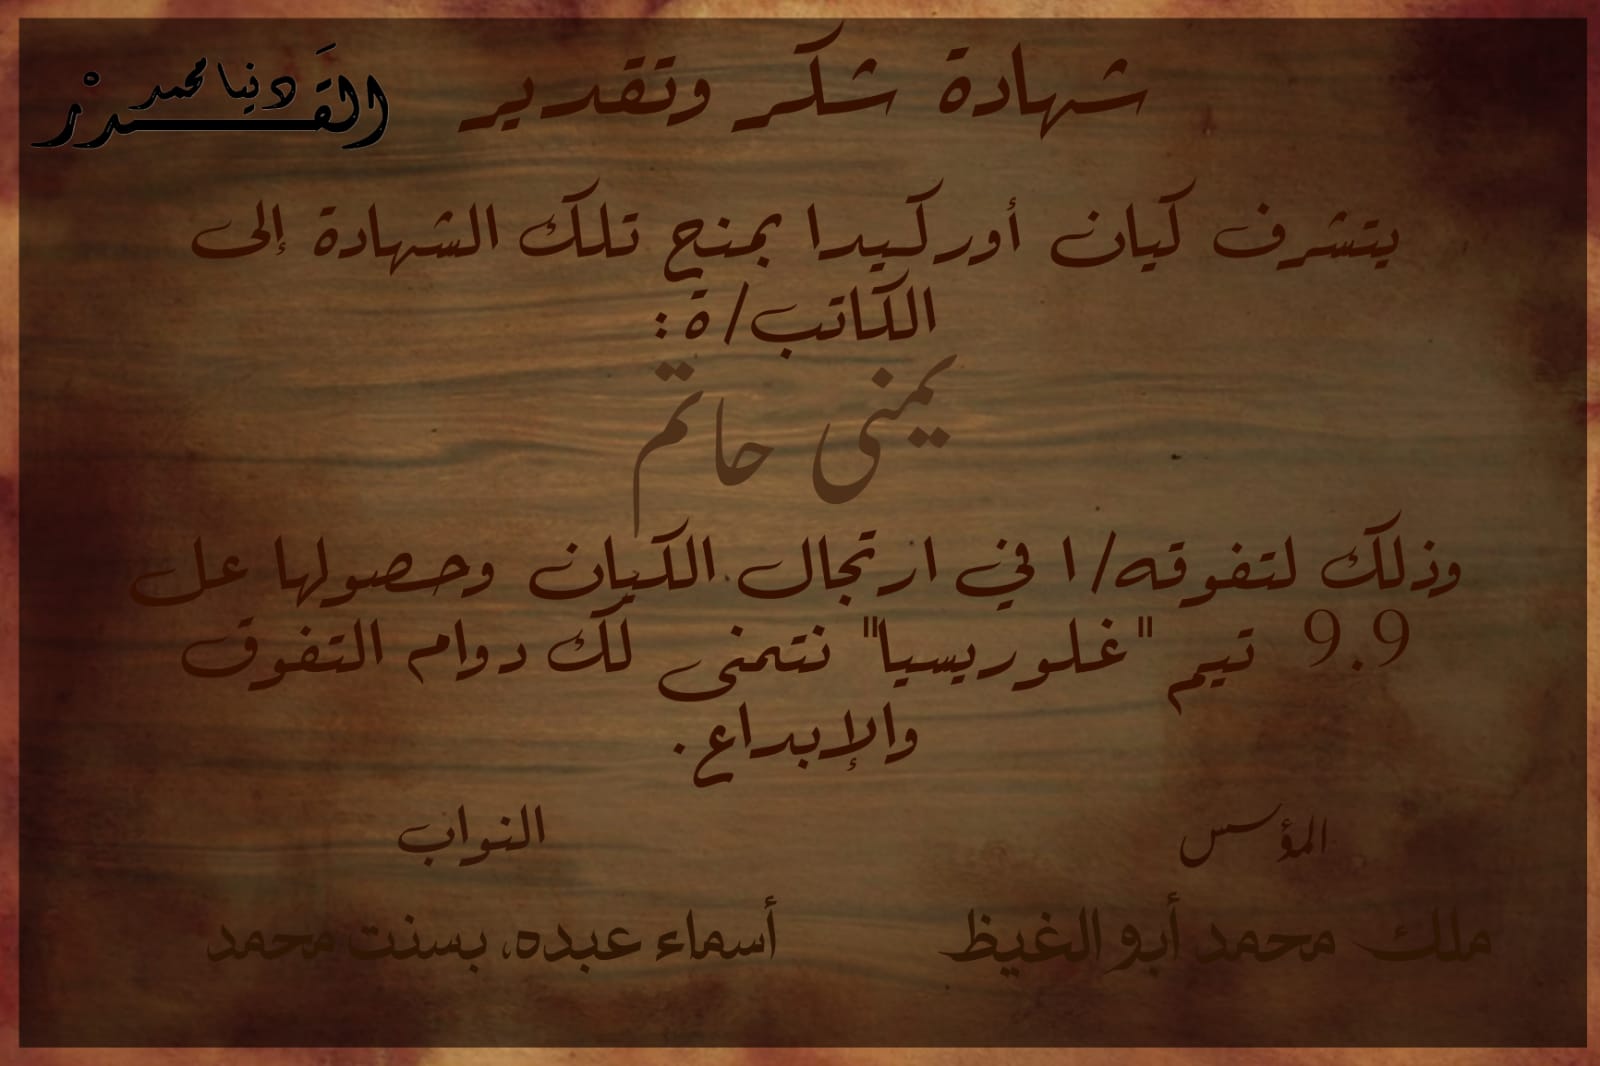 شهادة شكر وتقدير
دنيا محمد
القَدرْ
يتشرف كيان أوركيدا بمنح تلك الشهادة إلى
الكاتب/ة:
يمنى حاتم
وذلك لتفوقه/ا في ارتجال الكيان وحصولها عل
9.9 تيم "غلوريسيا" نتمنى لك دوام التفوق
والإبداع.
المؤسس
ملك محمد أبو الغيظ
النواب
أسماء عبده، بسنت محمد